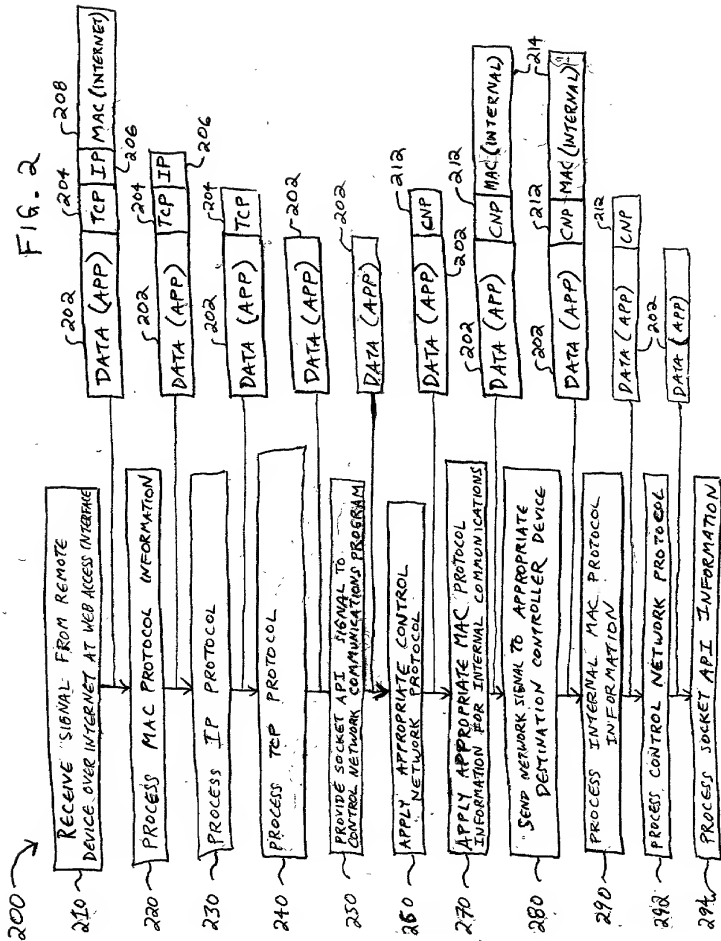 FIG. 2
200
210
RECEIVE SIGNAL FROM REMOTE
DEVICE OVER INTERNET AT WEB ACCESS INTERFACE
202
204
208
DATA (APP)
TCP
IP
MAC (INTERNET)
206
220
PROCESS MAC PROTOCOL INFORMATION
202
204
DATA (APP)
TCP
IP
206
230
PROCESS IP PROTOCOL
202
204
DATA (APP)
TCP
240
PROCESS TCP PROTOCOL
DATA (APP)
202
250
PROVIDE SOCKET API SIGNAL TO
CONTROL NETWORK COMMUNICATIONS PROGRAM
DATA (APP)
202
260
APPLY APPROPRIATE CONTROL
NETWORK PROTOCOL
DATA (APP)
CNP
212
202
270
APPLY APPROPRIATE MAC PROTOCOL
INFORMATION FOR INTERNAL COMMUNICATIONS
202
212
DATA (APP)
CNP
MAC (INTERNAL)
214
280
SEND NETWORK SIGNAL TO APPROPRIATE
DESTINATION CONTROLLER DEVICE
202
212
DATA (APP)
CNP
MAC (INTERNAL)
290
PROCESS INTERNAL MAC PROTOCOL
INFORMATION
212
DATA (APP)
CNP
202
292
PROCESS CONTROL NETWORK PROTOCOL
DATA (APP)
294
PROCESS SOCKET API INFORMATION